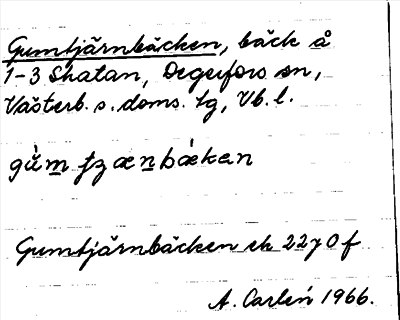 Gumtjärnbäcken, bäck å
1-3 Skatan, Degerfors sn,
Västerb. s. doms. tg, Vb. l.
gùm tjzænbákan
Gumtjärnbäcken ek 22y0f
A. Carlén 1966.